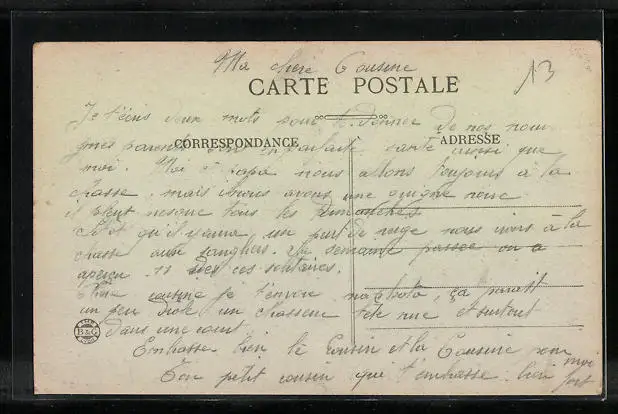 Ma chère Cousine
13
CARTE POSTALE
Je t'écris deux mots pour te donner de nos nouv
CORRESPONDANCE
ADRESSE
mes parents sont en parfaite santé aussi que
moi. Moi et papa nous allons toujours à la
chasse mais nous avons une guigne noire
il pleut presque tous les Dimanches.
Sitôt qu'il y aura un peu de neige nous irons à la
chasse aux sangliers. La semaine passée on a
aperçu 11 de ces solitaires.
Chère cousine je t'envoie ma photo, ça paraît
un peu drôle un chasseur tête nue et surtout
dans une cour.
B & G
Embrasse bien le Cousin et la Cousine pour moi
Ton petit cousin que t'embrasse bien fort